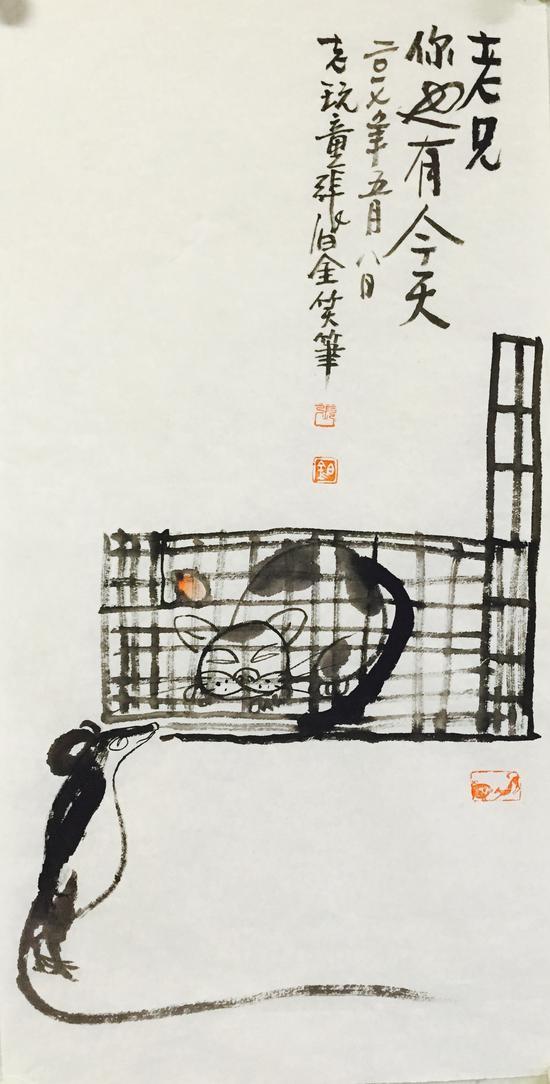 老兄
你也有今天
二〇一七年五月八日
老玩童張泊金笑筆